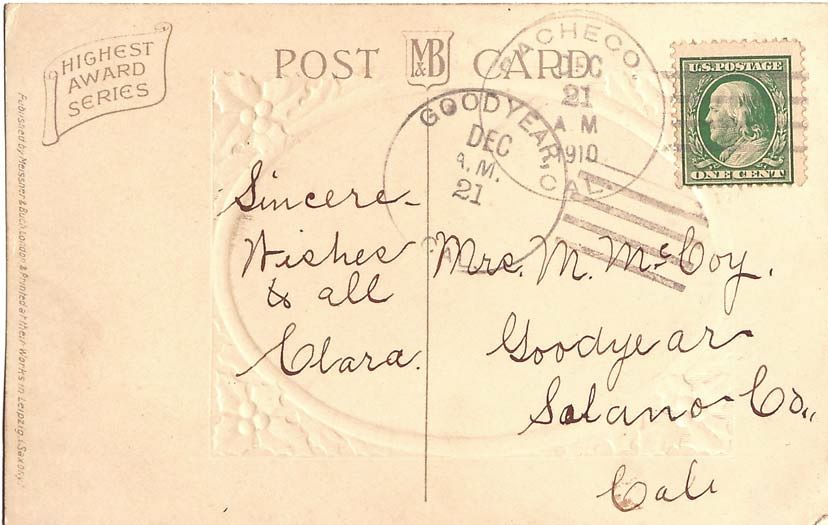 HIGHEST
AWARD
SERIES
POST M&B CARD
PACHECO,
DEC
21
A M
1910
CAL.
GOODYEAR,
DEC
A.M.
21
U.S. POSTAGE
ONE CENT
Published by Meissner & Buch London & Printed at their Works in Leipzig (Saxony)
Sincere
Wishes
to all
Clara.
Mrs. M. McCoy.
Goodyear
Solano Co.,
Cali